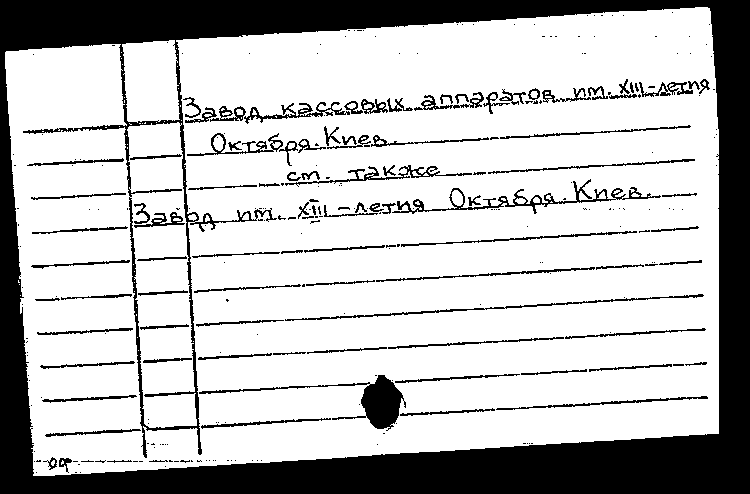 Завод кассовых аппаратов им. XIII-летия
Октября. Киев.
см. также
Завод им. XIII-летия Октября. Киев.